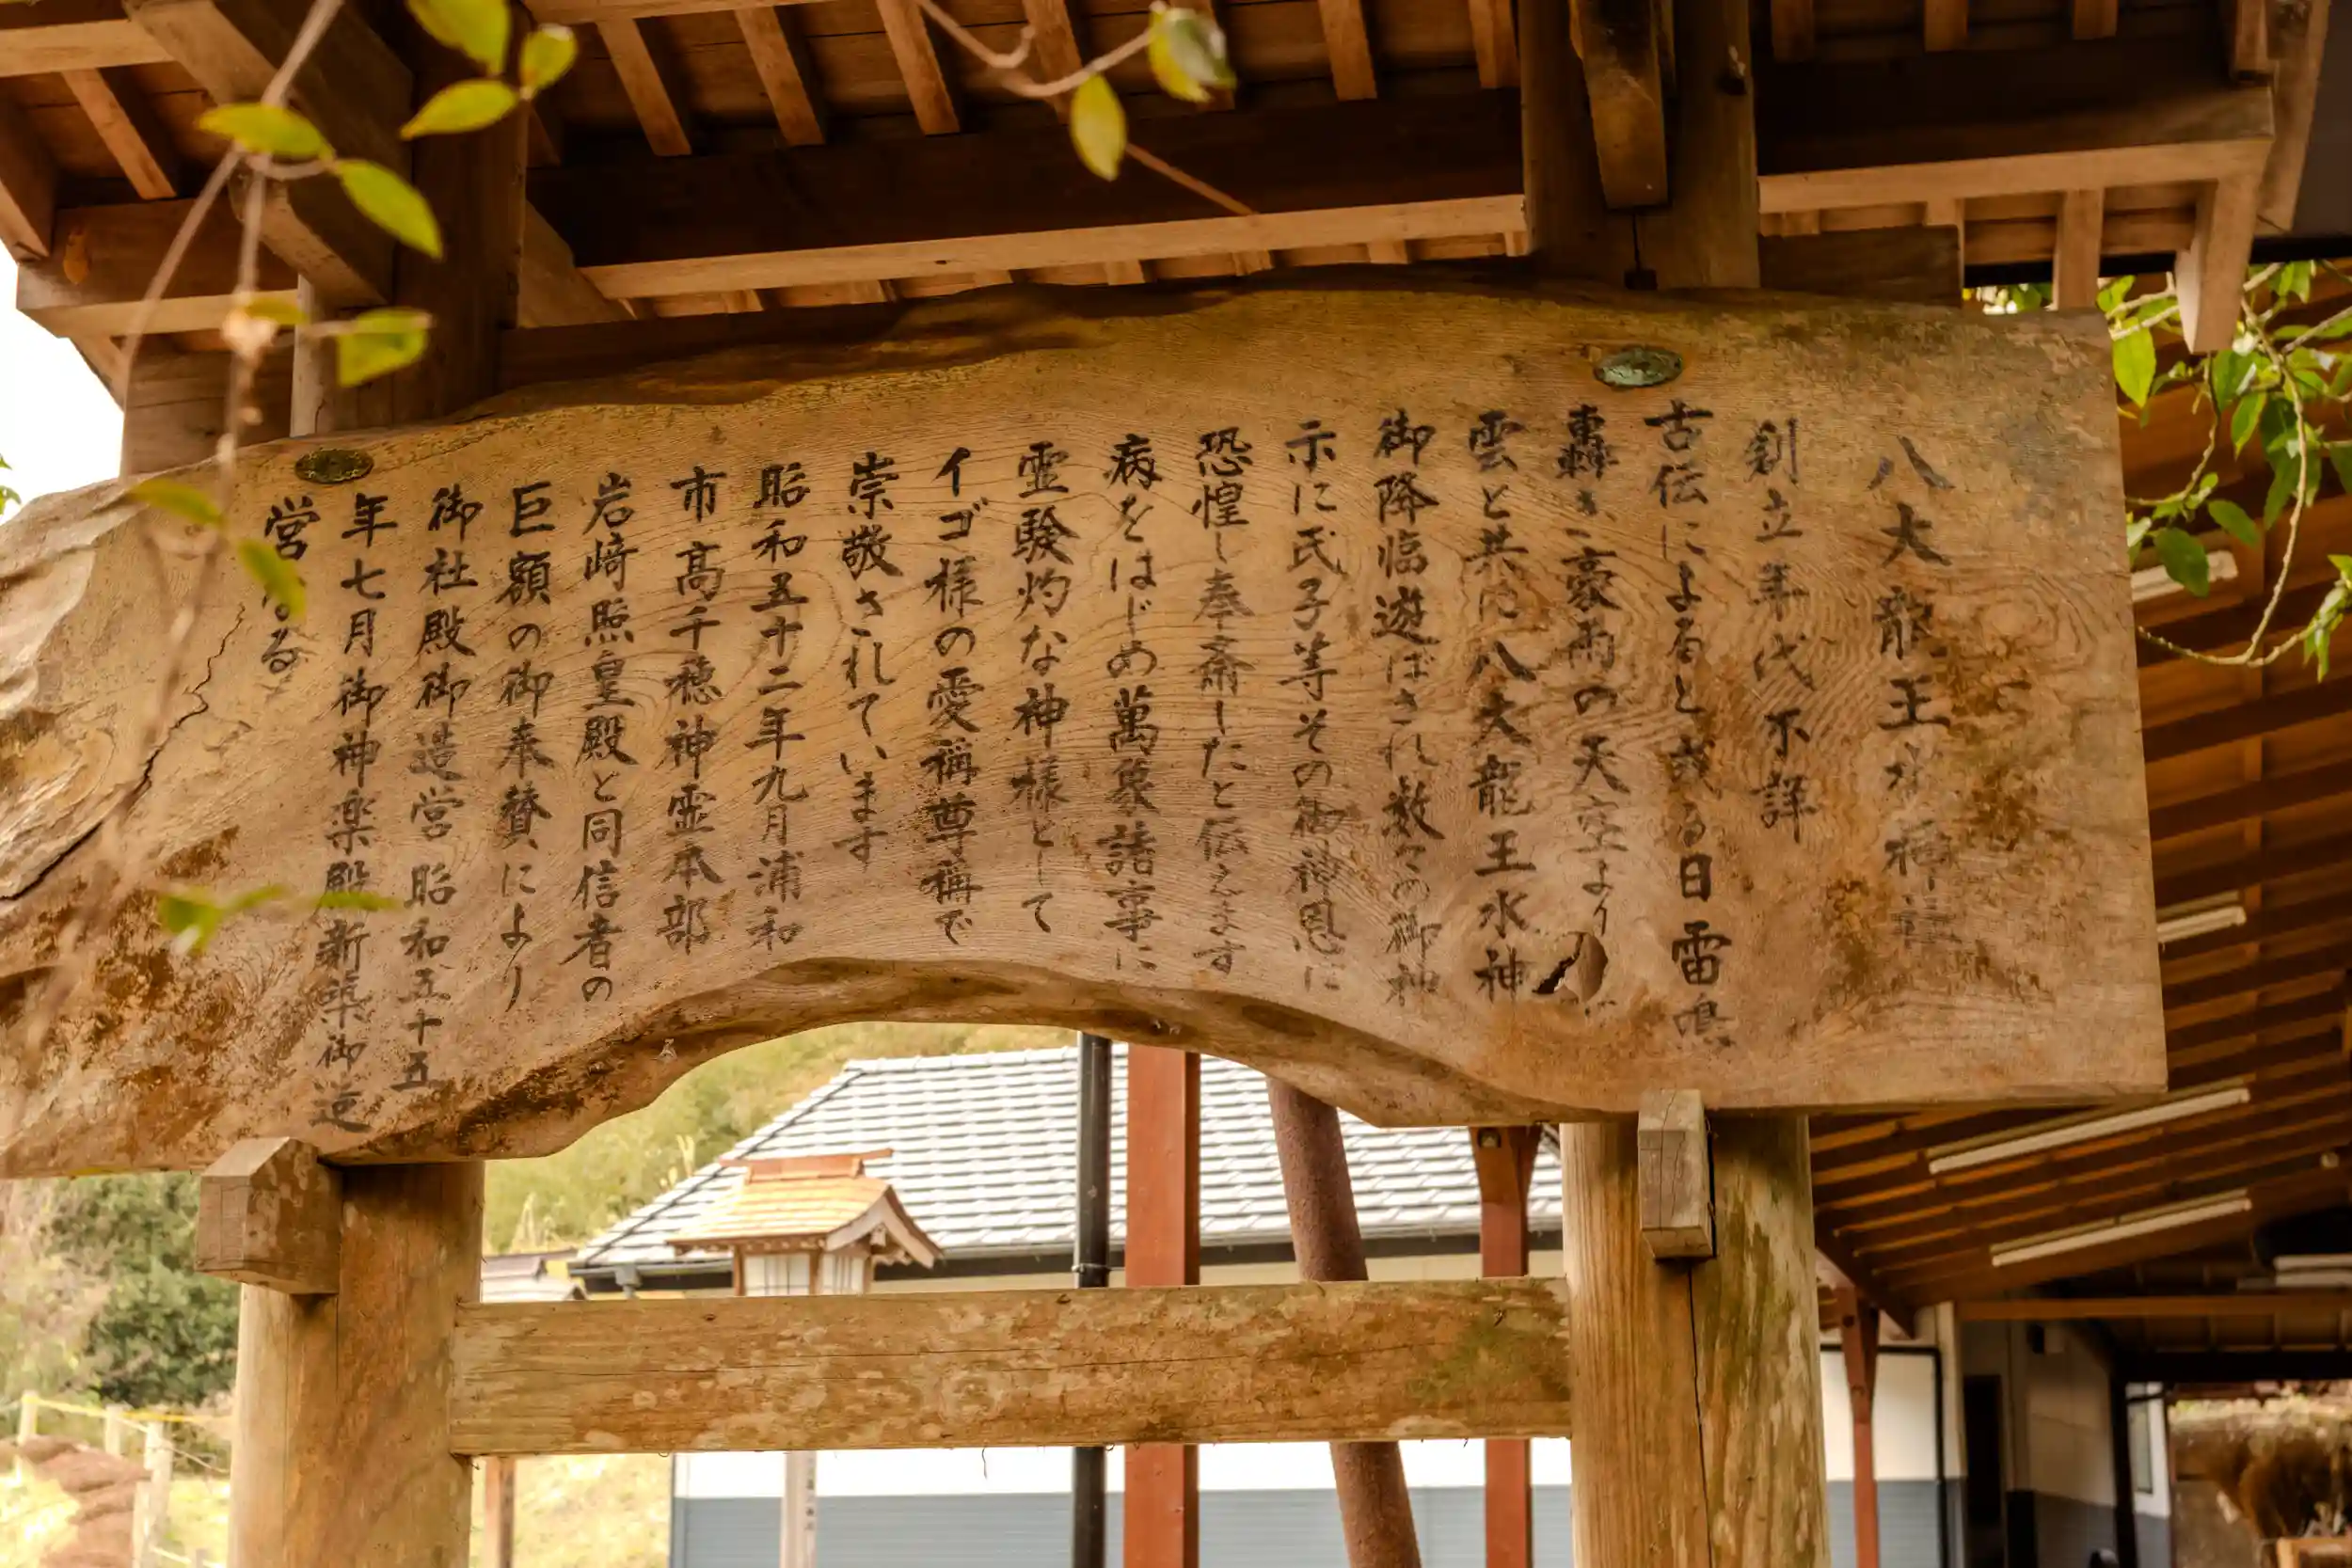 八大龍王水神社
創立年代不詳
古伝によると或る日雷鳴
轟き豪雨の天空より
雲と共に八大龍王水神
御降臨遊ばされ数々の御神
示に氏子等その御神恩に
恐惶し奉斎したと伝えます
病をはじめ萬象諸事に
霊験灼な神様として
イゴ様の愛称尊称で
崇敬されています
昭和五十二年九月浦和
市高千穂神霊本部
岩崎照皇殿と同信者の
巨額の御奉賛により
御社殿御造営昭和五十五
年七月御神楽殿新築御造
営なる